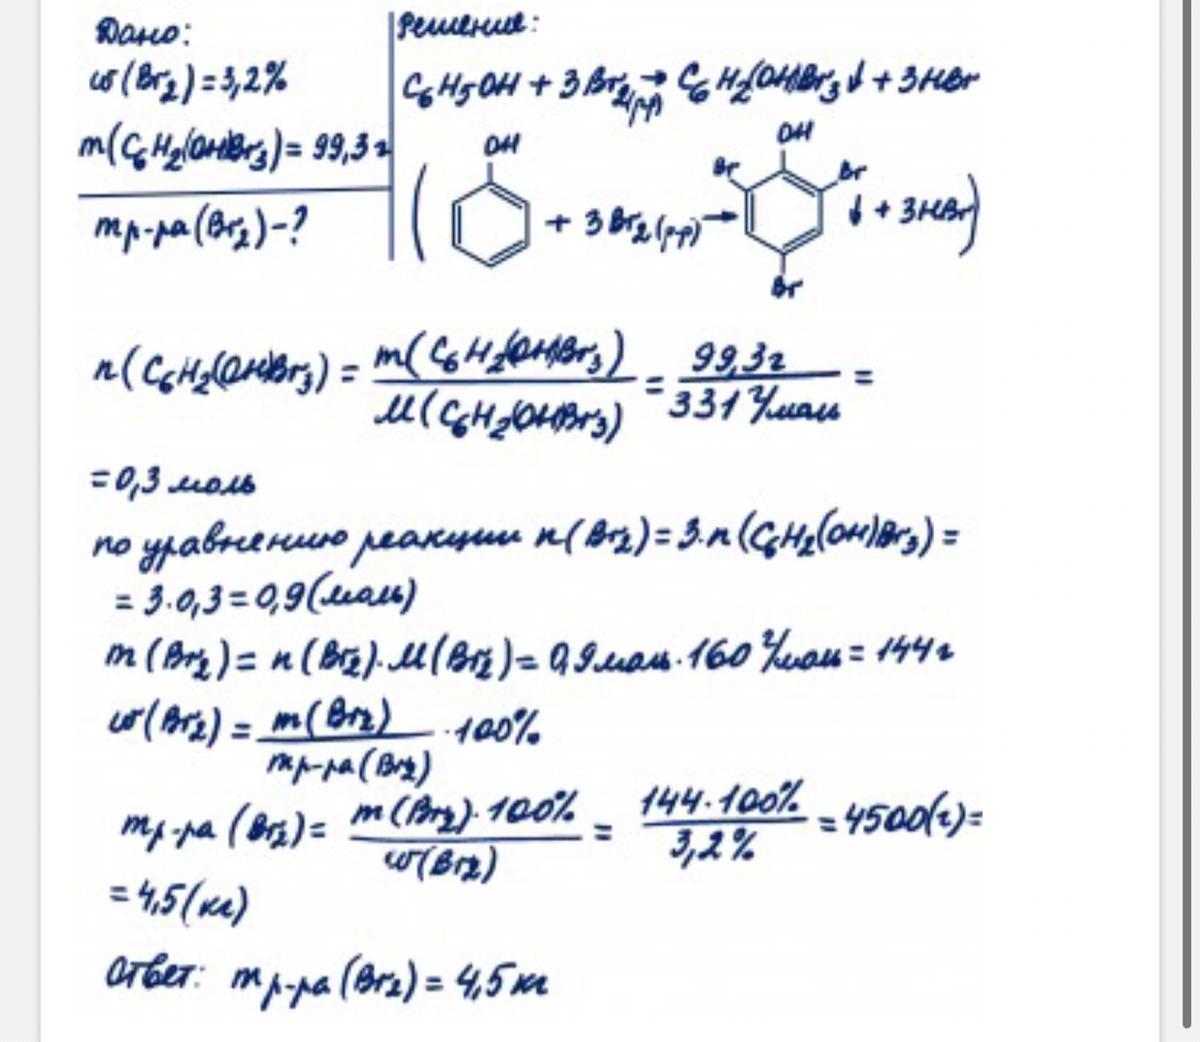 Дано:
ω(Br₂)=3,2%
m(C₆H₂(OH)Br₃)= 99,3 г
mр-ра(Br₂)-?
Решение:
C₆H₅OH + 3Br₂(р-р) → C₆H₂(OH)Br₃↓ + 3HBr
OH
( + 3Br₂(р-р) →
OH
Br Br
Br
↓ + 3HBr)
n(C₆H₂(OH)Br₃) = m(C₆H₂(OH)Br₃) / M(C₆H₂(OH)Br₃) = 99,3г / 331 г/моль =
= 0,3 моль
по уравнению реакции n(Br₂)= 3·n(C₆H₂(OH)Br₃) =
= 3·0,3 = 0,9(моль)
m(Br₂)= n(Br₂)·M(Br₂)= 0,9моль·160 г/моль = 144г
ω(Br₂) = m(Br₂) / mр-ра(Br₂) ·100%
mр-ра (Br₂)= m(Br₂)·100% / ω(Br₂) = 144·100% / 3,2% = 4500(г)=
= 4,5(кг)
Ответ: mр-ра(Br₂)= 4,5 кг